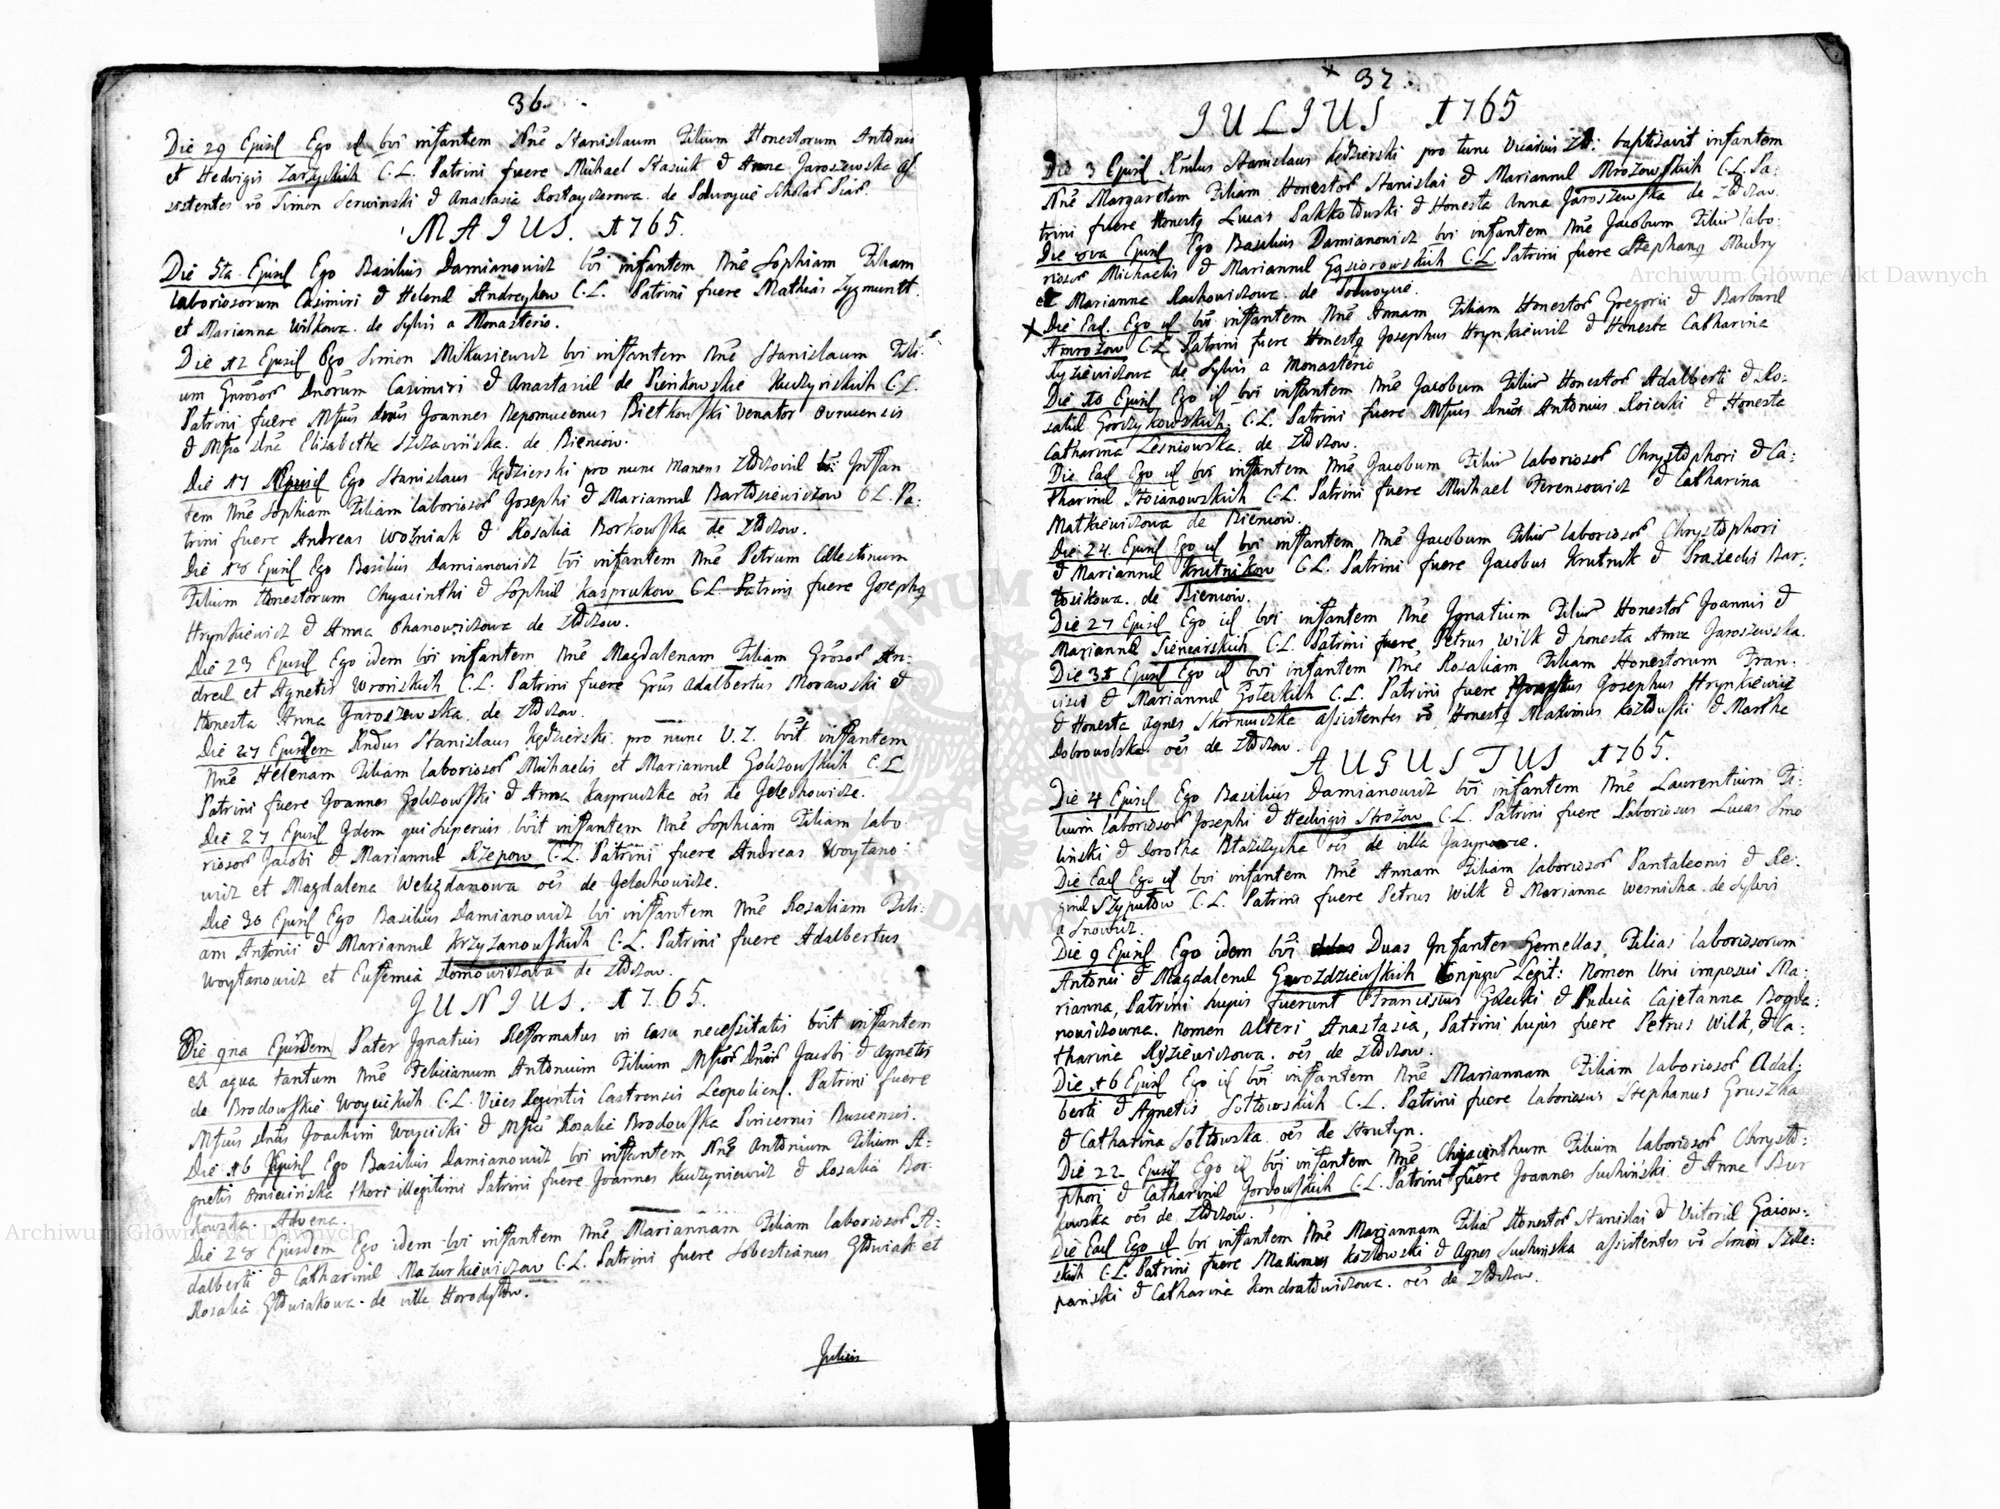 36.
Die 29 Ejusd Ego id bvi infantem Nnē Stanislaum Filium Honestorum Antonii
et Hedvigis Zarzyckich C.L. Patrini fuere Michael Stasiuk & Anna Jaroszewska as
sistentes vō Simon Serwinski & Anastasia
MAIUS. 1765.
Die 5ta Ejusd Ego Basilius Damianowicz bvi infantem Nnē Sophiam Filiam
laboriosorum Casimiri & Helenæ Andreykow C.L. Patrini fuere Mathias Zygmunt
et Marianna Wilkowa de Sylvis a Monasterio.
Die 12 Ejusd Ego Simon Mikusiewicz bvi infantem Nnē Stanislaum Fili-
um Gnrosor Dnorum Casimiri & Anastasiæ de Pienkowskie Kuczynskich C.L.
Patrini fuere Mfcus Dnus Joannes Nepomucenus Bietkowski Venator
& Mfca Dna Elisabetha de Bieniow.
Die 17 Ejusd Ego Stanislaus Kędzierski pro nunc manens Zloczoviæ bvi Infan
tem Nnē Sophiam Filiam laboriosor Josephi & Mariannæ Bartosiewiczow C.L. Pa:
trini fuere Andreas Wozniak & Rosalia Borkowska de Zloczow.
Die 18 Ejusd Ego Basilius Damianowicz bvi infantem Nnē Petrum Cælestinum
Filium Honestorum Chyacinthi & Sophiæ Kasprukow C.L. Patrini fuere Josephq
Hrynkiewicz & Anna Ohanowiczowa de Zloczow.
Die 23 Ejusd Ego idem bvi infantem Nnē Magdalenam Filiam Grosor An-
dreæ et Agnetis Wronskich C.L. Patrini fuere Grus Adalbertus Morawski &
Honesta Anna Jaroszewska de Zloczow.
Die 27 Ejusdem Rndus Stanislaus Kędzierski pro nunc V.Z. bvit infantem
Nnē Helenam Filiam laboriosor Michaelis et Mariannæ Golczowskich C.L
Patrini fuere Joannes Golczowski & Anna Kaspruczka oēs de Jelechowicze.
Die 27 Ejusd Idem qui superius bvit infantem Nnē Sophiam Filiam labo
riosor Jacobi & Mariannæ Rzepow C.L. Patrini fuere Andreas Woytano
wicz et Magdalena Weligdanowa oēs de Jelechowicze.
Die 30 Ejusd Ego Basilius Damianowicz bvi infantem Nnē Rosaliam Fili-
am Antonii & Mariannæ Krzyzanowskich C.L. Patrini fuere Adalbertus
Woytanowicz et Eufemia Tomowiczowa de Zloczow.
JUNIUS. 1765.
Die 9na Ejusdem Pater Ignatius Reformatus in casu necessitatis bvit infantem
ex aqua tantum Nnē Felicianum Antonium Filium Mfcor Dnor Jacobi & Agnetis
de Brodowskie Woycickich C.L. Vices Regentis Castrensis Leopolien. Patrini fuere
Mfcus Dnus Joachim Woycicki & Mfca Rosalia Brodowska Pincernis Busciensis.
Die 16 Ejusd Ego Basilius Damianowicz bvi infantem Nnē Antonium Filium A-
gnetis thori illegitimi Patrini fuere Joannes Kuczyniewicz & Rosalia Bor-
kowska. Advena.
Die 28 Ejusdem Ego idem bvi infantem Nnē Mariannam Filiam laboriosor A-
dalberti & Catharinæ Mazurkiewiczow C.L. Patrini fuere Sobestianus Glowiak et
Rosalia Glowiakowa de villa Horodylow.
Julius
37.
IULIUS 1765
Die 3 Ejusd Rndus Stanislaus Kędzierski pro tunc Vicarius Zl: baptisavit infantem
Nnē Margaretam Filiam Honestor Stanislai & Mariannæ Mrozowskich C.L. Pa:
trini fuere Honestq Lucas Pakkoduski & Honesta Anna Jaroszewska de Zloczow.
Die 8va Ejusd Ego Basilius Damianowicz bvi infantem Nnē Jacobum Filiū labo:
riosor Michaelis & Mariannæ Gąsiorowskich C.L. Patrini fuere Stephanq Mudry
et Marianna Rachowiczowa de
Die Ead. Ego id bvi infantem Nnē Annam Filiam Honestor Gregorii & Barbaræ
Amrozow C.L. Patrini fuere Honestq Josephus Hrynkiewicz & Honesta Catharina
Ryziewiczowa de Sylvis a Monasterio
Die 10 Ejusd Ego id bvi infantem Nnē Jacobum Filiū Honestor Adalberti & Ro:
saliæ Gorzykowskich. C.L. Patrini fuere Mfcus Dnus Antonius Roiecki & Honesta
Catharina Lesniowska de Zloczow.
Die Ead Ego id bvi infantem Nnē Jacobum Filiū laboriosor Chrystophori & Ca:
tharinæ Stocianowskich C.L. Patrini fuere Michael Ferensowicz & Catharina
Matkiewiczowa de Bieniow.
Die 24. Ejusd Ego id bvi infantem Nnē Jacobum Filiū laboriosor Chrystophori
& Mariannæ Krutnikow C.L. Patrini fuere Jacobus Krutnik & Praxedis Bar-
tosikowa de Bieniow.
Die 27 Ejusd Ego id bvi infantem Nnē Ignatium Filiū Honestor Joannis &
Mariannæ Sieniarskich C.L. Patrini fuere, Petrus Wilk & honesta Anna Jaroszewska.
Die 31 Ejusd Ego id bvi infantem Nnē Rosaliam Filiam Honestorum Fran-
cisci & Mariannæ Goleckich C.L. Patrini fuere Honestus Josephus Hrynkiewicz
& Honesta Agnes Skorniuczka assistentes vō Honestq Maximus Kozłowski & Martha
Dobrowolska oēs de Zloczow.
AUGUSTUS 1765.
Die 4 Ejusd Ego Basilius Damianowicz bvi infantem Nnē Laurentium Fi:
lium laboriosor Josephi & Hedvigis Strozow C.L. Patrini fuere Laboriosus Lucas Smo
linski & Dorotha Ptaszycha oēs de villa Jasynowce.
Die Ead Ego id bvi infantem Nnē Annam Filiam laboriosor Pantaleonis & Re:
ginæ Szypulow C.L. Patrini fuere Petrus Wilk & Marianna Wesnicha de Sylvis
a Snowicz.
Die 9 Ejusd Ego idem bvi Duas Infantes Gemellas, Filias laboriosorum
Antonii & Magdalenæ Gwozdziewskich Conjugū Legit: Nomen Uni imposui Ma:
rianna, Patrini hujus fuerunt Franciscus Golecki & Pudica Cajetanna Bogda:
nowiczowna. Nomen Alteri Anastasia, Patrini hujus fuere Petrus Wilk, & Ca:
tharina Ryziewiczowa. oēs de Zloczow.
Die 16 Ejusd Ego id bvi infantem Nnē Mariannam Filiam laboriosor Adal:
berti & Agnetis Soltowskich C.L. Patrini fuere laboriosus Stephanus Gruszka
& Catharina Soltowska oēs de Strutyn.
Die 22 Ejusd Ego id bvi infantem Nnē Chyacinthum Filium laboriosor Chrysto:
phori & Catharinæ Jordowskich C.L. Patrini fuere Joannes Suchinski & Anna Bur
kowska oēs de Zloczow.
Die Ead Ego id bvi infantem Nnē Mariannam Filiā Honestor Stanislai & Victoriæ Gaiow-
skich C.L. Patrini fuere Maximus Kozlowski & Agnes Suchinska assistentes vō Simon Szcze:
panski & Catharina Kondratowiczowa. oēs de Zloczow.
Archiwum Główne Akt Dawnych
Archiwum Główne Akt Dawnych